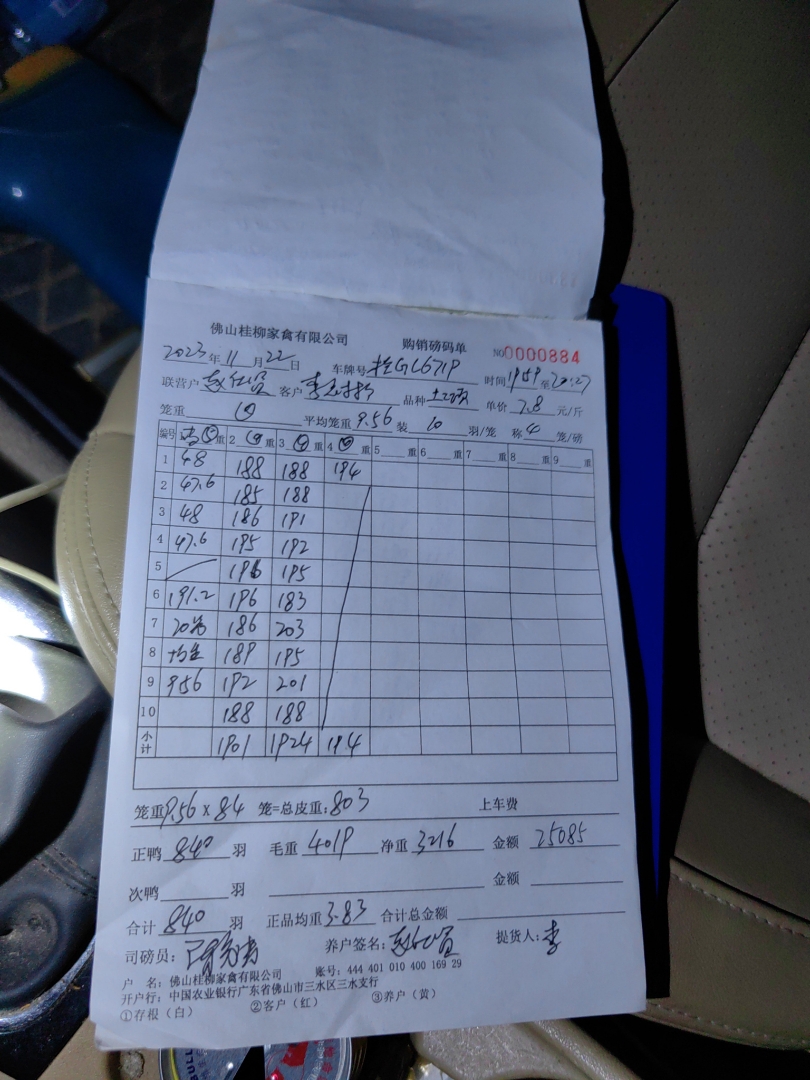 佛山桂柳家禽有限公司 购销磅码单 NO0000884
2023年11月22日 车牌号 桂GL671P 时间1959至20:27
联营户 客户 李 品种 单价 7.8 元/斤
笼重 ④ 平均笼重 9.56 装 10 羽/笼 称 4 笼/磅
编号 ⑤重 2 ④重 3 ④重 4 ④重 5 重 6 重 7 重 8 重 9 重
1 48 188 188 194
2 47.6 185 188
3 48 186 191
4 47.6 195 192
5 196 195
6 191.2 196 183
7 20笼 186 203
8 均重 189 195
9 956 192 201
10 188 188
小计 1901 1924 194
笼重9.56 x 84 笼=总皮重:803 上车费
正鸭 840 羽 毛重 4019 净重 3216 金额 25085
次鸭 羽 金额
合计 840 羽 正品均重 3.83 合计总金额
司磅员: 养户签名: 提货人: 李
户 名: 佛山桂柳家禽有限公司 账号: 444 401 010 400 169 29
开户行: 中国农业银行广东省佛山市三水区三水支行
①存根(白) ②客户(红) ③养户(黄)